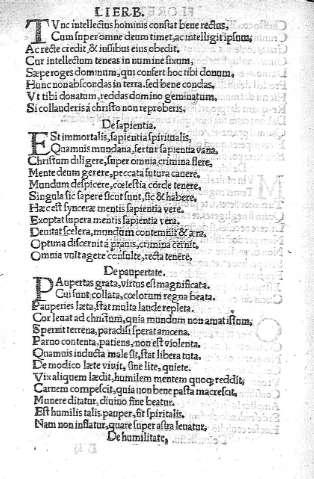 LIER B.
Tunc intellectus hominis constat bene rectus,
Cum super omne deum timet, ac intelligit ipsum,
Ac recte credit, & iussibus eius obedit,
Cur intellectum teneas in numine fixum,
Sæpe roges dominum, qui confert hoc tibi donum,
Hunc non abscondas in terra, sed bene condas,
Vt tibi donatum, reddas domino geminatum,
Si collauderis à christo non reproberis.
De sapientia.
Est immortalis, sapientia spiritualis,
Quamuis mundana, fertur sapientia vana,
Christum diligere, super omnia, crimina flere,
Mente deum gerere, peccata futura cauere,
Mundum despicere, cœlestia corde tenere,
Singula sic sapere sicut sunt, sic & habere,
Hæc est synceræ mentis sapientia vere.
Exoptat supera mentis sapientia vera,
Deuitat scelera, mundum contemnit & æra,
Optima discernit à prauis, crimina cernit,
Omnia vult agere consulte, recta tenére,
De paupertate.
Paupertas grata, virtus est magnificata,
Cui sunt collata, cœlorum regna beata.
Pauperies læta, stat multa laude repleta.
Cor leuat ad christum, quia mundum non amat istum,
Spernit terrena, paradisi sperat amœna.
Paruo contenta, patiens, non est violenta.
Quamuis inducta male sit, stat libera tuta.
De modico læte viuit, sine lite, quiete.
Vix aliquem lædit, humilem mentem quoq; reddit,
Carnem compescit, quia non bene pasta macrescit,
Munere ditatur, diuino fine beatur.
Est humilis talis, pauper, sit spiritalis,
Nam non inflatur, quare super astra leuatur.
De humilitate,